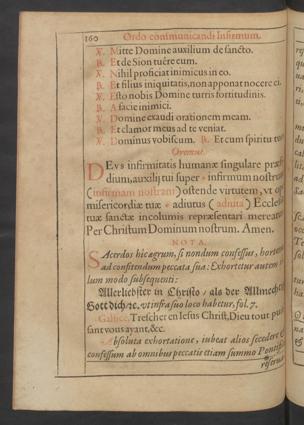 160 Ordo communicandi Infirmum.
℣. Mitte Domine auxilium de sancto.
℟. Et de Sion tuêre eum.
℣. Nihil proficiat inimicus in eo.
℟. Et filius iniquitatis, non apponat nocere ei.
℣. Esto nobis Domine turris fortitudinis.
℟. A facie inimici.
℣. Domine exaudi orationem meam.
℟. Et clamor meus ad te veniat.
℣. Dominus vobiscum. ℟. Et cum spiritu tuo
Oremus.
DEvs infirmitatis humanæ singulare præ-
dium, auxilij tui super infirmum nostrum
(infirmam nostram) ostende virtutem, vt op
misericordiæ tuæ adiutus (adiuta) Ecclesi
tuæ sanctæ incolumis repræsentari mereatur
Per Christum Dominum nostrum. Amen.
NOTA.
SAcerdos hic ægrum, si nondum confessus, horte
ad confitendum peccata sua: Exhortetur autem
lum modo subsequenti:
Allerliebster in Christo / als der Allmechti
Gott dich, &c. vt infra suo loco habetur, fol. 7.
Gallicè. Trescher en Iesus Christ, Dieu tout puis
sant vous ayant, &c.
Absoluta exhortatione, iubeat alios secedere
confessum ab omnibus peccatis etiam summo Pontifi
reserua